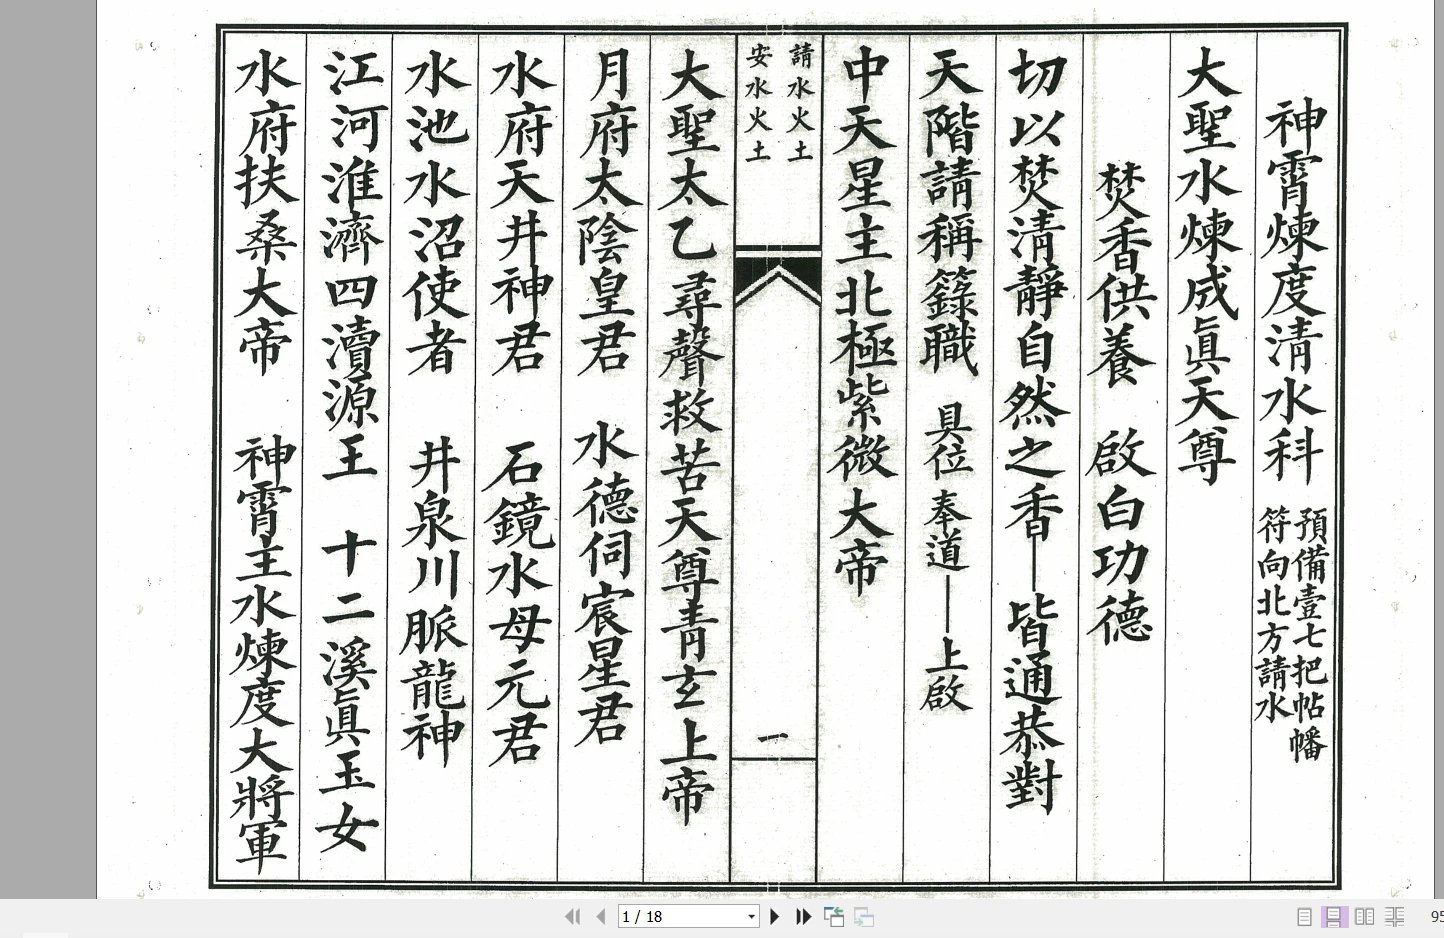 神霄煉度清水科 預備壹七把帖幡符向北方請水
大聖水煉成眞天尊
焚香供養 啟白功德
切以焚清靜自然之香｜皆通恭對
天階請稱籙職 具位 奉道｜上啟
中天星主北極紫微大帝
請水火土
安水火土
一
大聖太乙尋聲救苦天尊青玄上帝
月府太陰皇君 水德伺宸星君
水府天井神君 石鏡水母元君
水池水沼使者 井泉川脈龍神
江河淮濟四瀆源王 十二溪眞玉女
水府扶桑大帝 神霄主水煉度大將軍
1 / 18
95